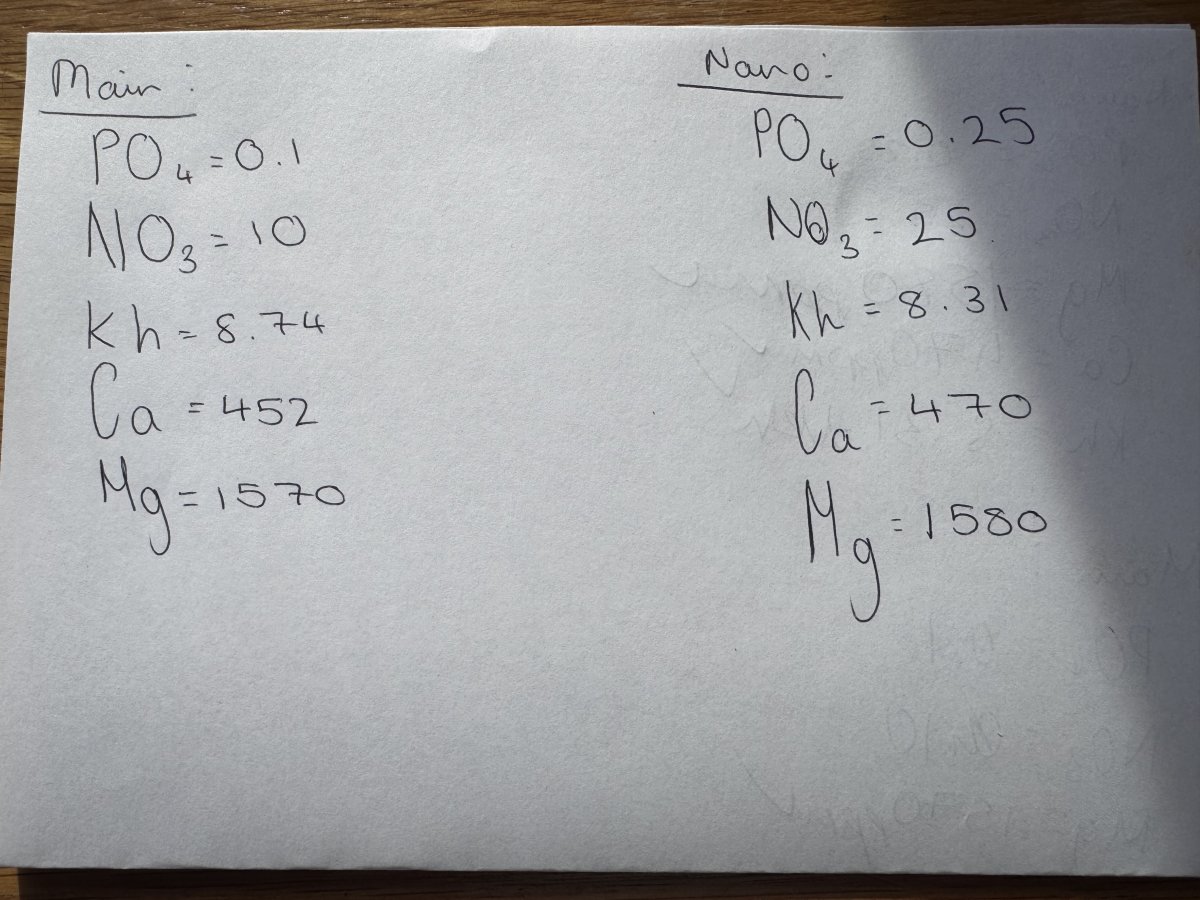 Main:
PO4 = 0.1
NO3 = 10
Kh = 8.74
Ca = 452
Mg = 1570
Nano:
PO4 = 0.25
NO3 = 25
Kh = 8.31
Ca = 470
Mg = 1580